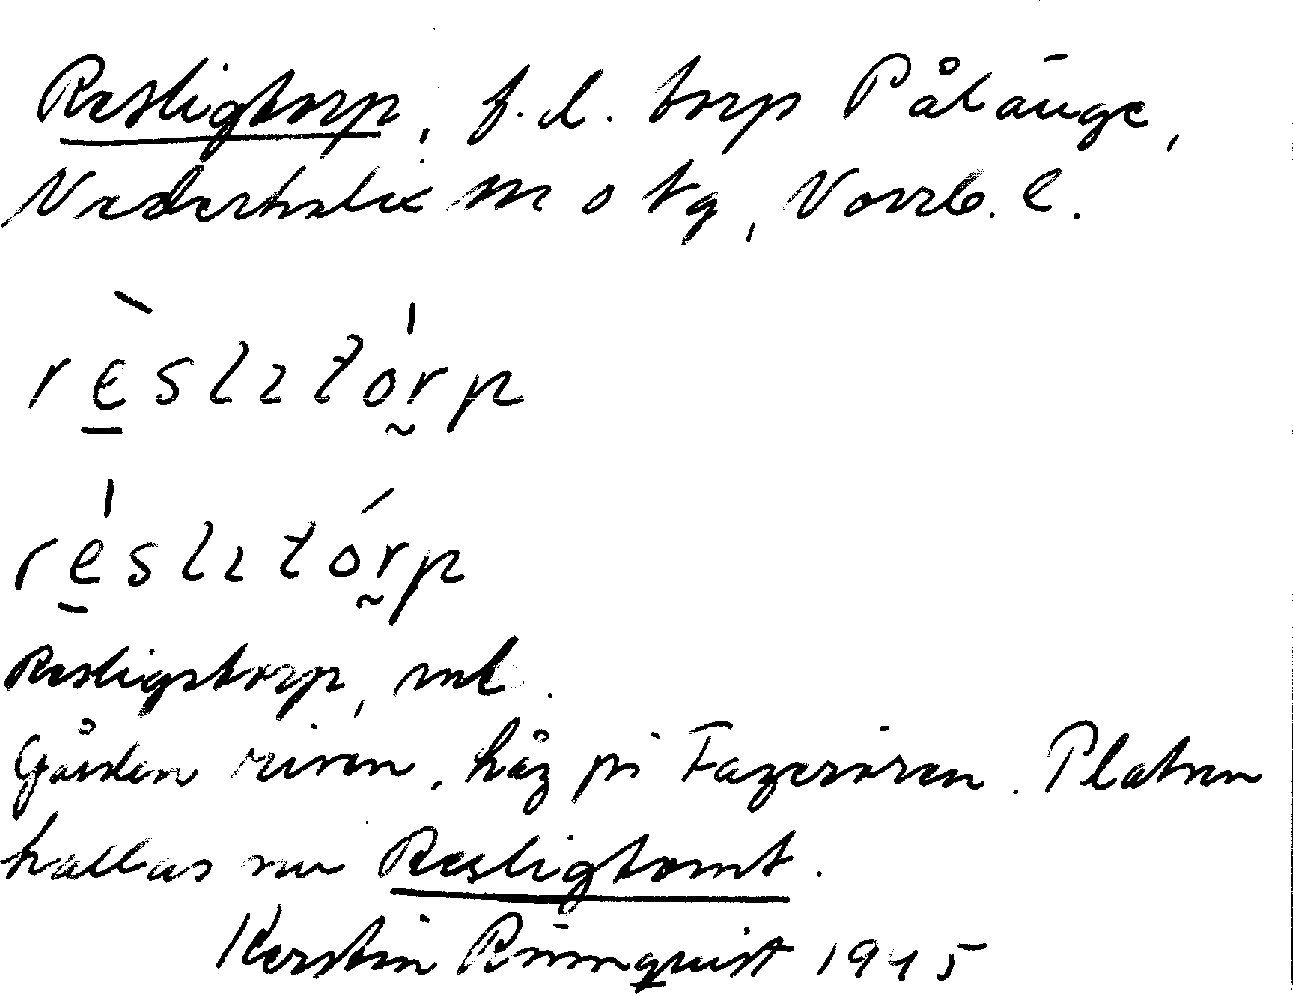 Resligtorp, f.d. torp Pålänge,
Nederkalix m o tg, Norrb. l.
rèslıtórp
réslıtórp
Resligstorp, mb.
Gården riven, låg på Fageråsen. Platsen
kallas nu Resligtomt.
Kerstin Rönnquist 1945